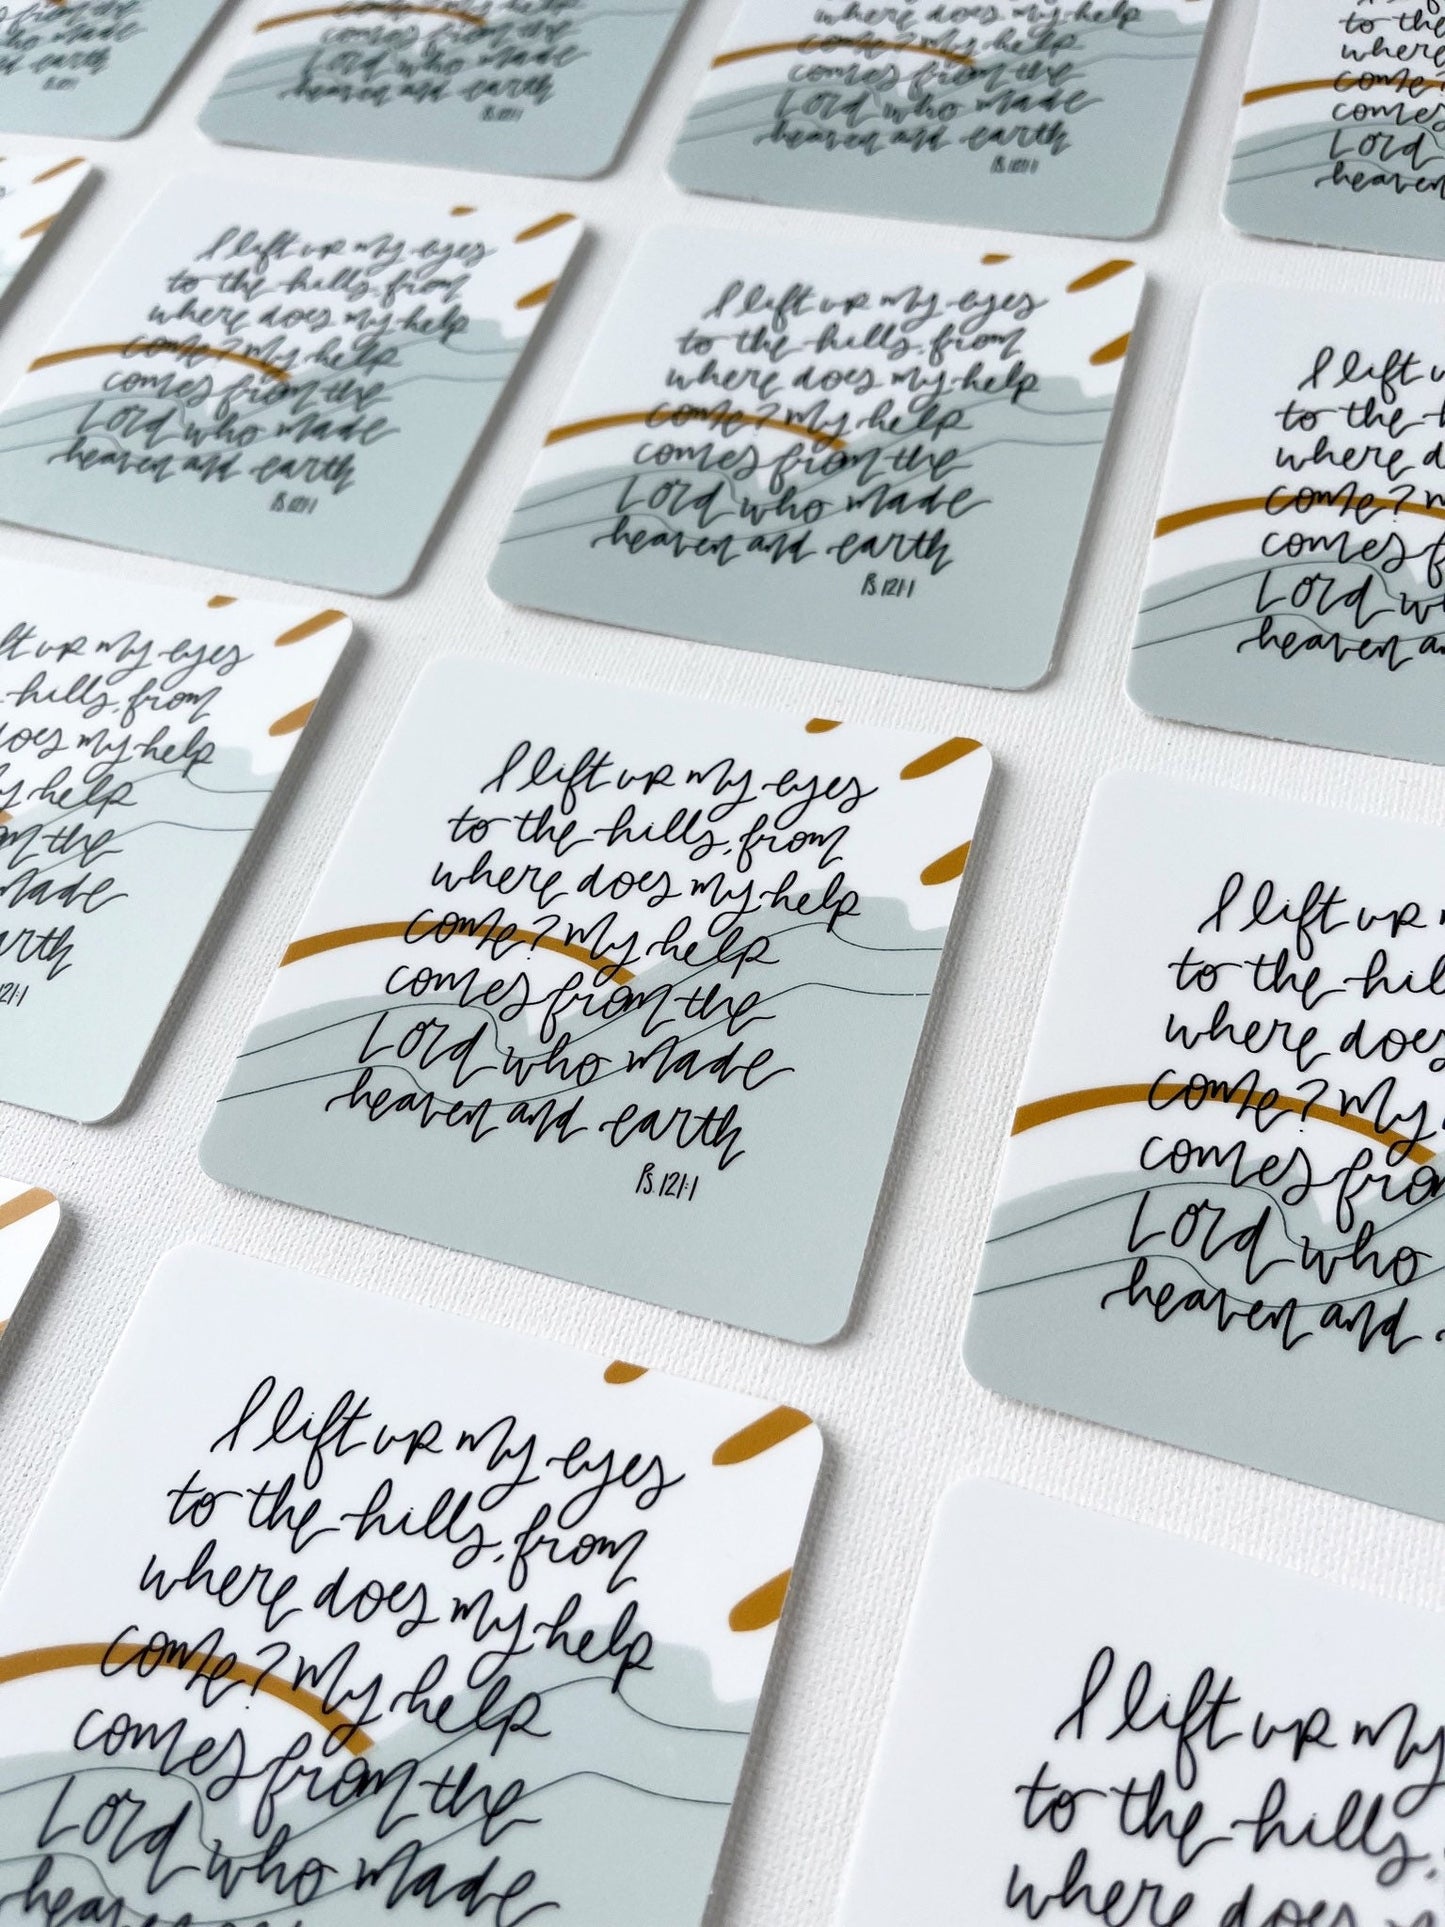 I lift up my eyes
to the hills, from
where does my help
come? My help
comes from the
Lord who made
heaven and earth
Ps. 121:1